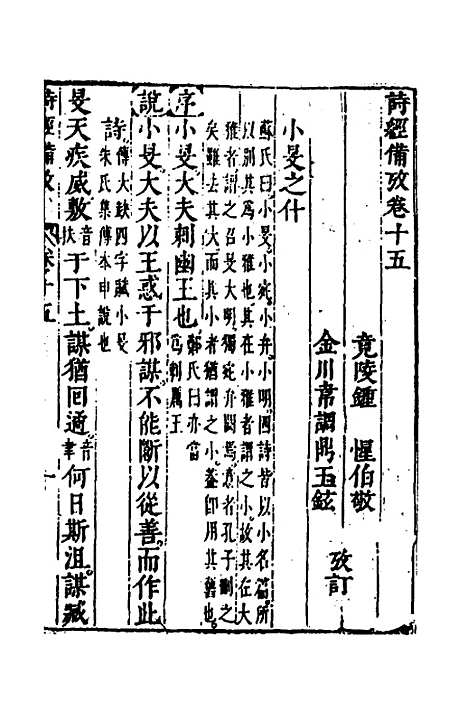 詩經備攷卷十五
竟陵鍾 惺伯敬
金川韋調鼎玉鉉
攷訂
小旻之什
蘇氏曰小旻小宛小弁小明四詩皆以小名篇所
以別其爲小雅也其在小雅者謂之小故其在大
雅者謂之召旻大明獨宛弁闕焉意者孔子刪之
矣雖去其大而其小者猶謂之小蓋卽用其舊也
序小旻大夫刺幽王也
鄭氏曰亦當
爲刺厲王
說小旻大夫以王惑于邪謀不能斷以從善而作此
詩
傳大缺四字賦小旻
朱氏集傳本申說也
旻天疾威敷音扶于下土謀猶回遹音聿何日斯沮謀臧
詩經備攷
卷十五
一